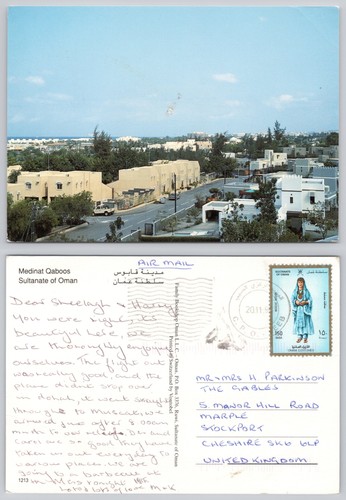 Medinat Qaboos
Sultanate of Oman
مدينة قابوس
سلطنة عمان
AIR MAIL
Dear Sheelagh & Harry
You were right its
beautiful here, we
are thoroughly enjoying
ourselves. The flight out
was really good and the
plane didnt stop over
in it went straight
through to Muscat, we
arrived just after 8.00am
cars are so good they have
taken us out everyday to
various places, we are
going to a barbecue at
lots of love M & K
1213
Family Bookshop Oman L.L.C. - Oman, P.O. Box 1976, Ruwi, Sultanate of Oman
Printed in
20.11.
SULTANATE
OF OMAN
سلطنة عمان
150
١٥٠
OMANI COSTUMES
MR + MRS H PARKINSON
THE GABLES
5 MANOR HILL ROAD
MARPLE
STOCKPORT
CHESHIRE SK6 6LP
UNITED KINGDOM